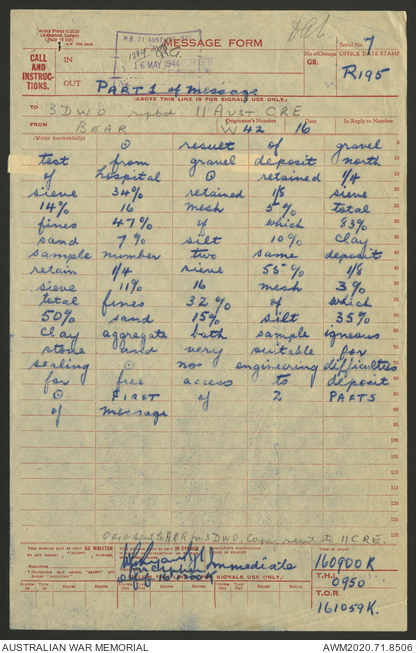 Army Form C2128
MESSAGE FORM
Serial No. 7
CALL AND INSTRUC-TIONS.
IN
H.Q. 11 AUST.
16 MAY 1944
No. of Groups
GR.
OFFICE DATE STAMP
R195
OUT PART 1 of message
(ABOVE THIS LINE IS FOR SIGNALS USE ONLY.)
TO 3 DWO rptd 11 AUST CRE
FROM BEAR
Originator's Number W 42
Date 16
In Reply to Number
(Write horizontally)
⊙ result of gravel
test from gravel deposit north
of hospital ⊙ retained 1/4
sieve 34% retained 1/8 sieve
14% 16 mesh 5% total
fines 47% of which 83%
sand 7% silt 10% clay
sample number two same deposit
retain 1/4 sieve 55% 1/8
sieve 11% 16 mesh 3%
total fines 32% of which
50% sand 15% silt 35%
clay aggregate both sample igneous
stone and very suitable for
sealing ⊙ no engineering difficulties
for free access to deposit
⊙ FIRST of 2 PARTS
of message
ORIG sent to for 3 DWO, Copy sent to 11 CRE.
THIS MESSAGE MAY BE SENT AS WRITTEN
IN CIPHER
Immediate
SIGNALS USE ONLY.
TIME OF ORIGIN
160900K
T.H.I.
0950
T.O.R.
161059K.
AUSTRALIAN WAR MEMORIAL
AWM2020.71.8506